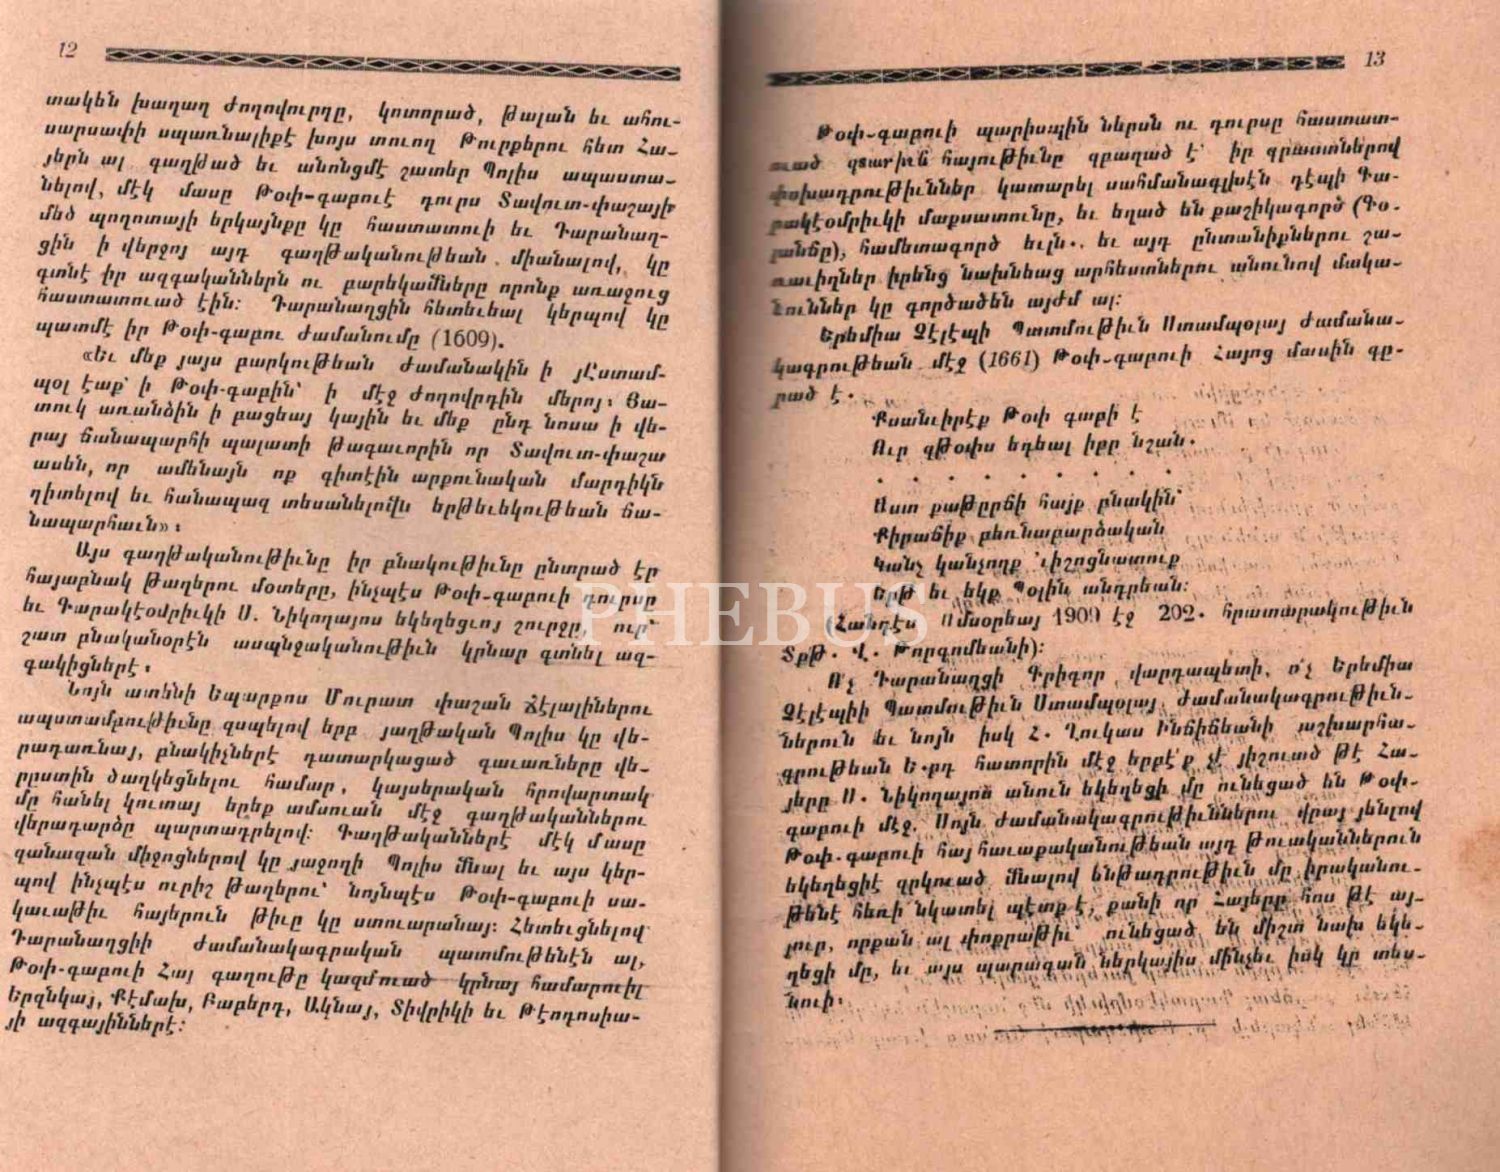 12
տակեն խաղաղ ժողովուրդը, կոտորած, թալան եւ ահու-
սարսափի սպառնալիքէ խոյս տուող Թուրքերու հետ Հա-
յերն ալ գաղթած եւ անոնցմէ շատեր Պոլիս ապաստա-
նելով, մէկ մասը Թօփ-գաբուէ դուրս Տավուտ-փաշայի
մեծ պողոտայի երկայնքը կը հաստատուի եւ Դարանաղ-
ցին ի վերջոյ այդ գաղթականութեան միանալով, կը
գտնէ իր ազգականներն ու բարեկամները որոնք առաջուց
հաստատուած էին։ Դարանաղցին հետեւեալ կերպով կը
պատմէ իր Թօփ-գաբու ժամանումը (1609).
«Եւ մեք յայս բարկութեան ժամանակին ի յԸստամ-
պօլ էաք՝ ի Թօփ-գաբին՝ ի մէջ ժողովրդին մերոյ։ Ցա-
տուկ առանձին ի բացեայ կային եւ մեք ընդ նոսա ի վե-
րայ ճանապարհի պալատի թագաւորին որ Տավուտ-փաշա
ասեն, որ ամենայն ոք գիտէին արքունական մարդիկն
դիտելով եւ հանապազ տեսանելովն երթեւեկութեան ճա-
նապարհաւն»։
Այս գաղթականութիւնը իր բնակութիւնը ընտրած էր
հայաբնակ թաղերու մօտերը, ինչպէս Թօփ-գաբուի դուրսը
եւ Գարակէօմրիւկի Ս. Նիկողայոս եկեղեցւոյ շուրջը, ուր՝
շատ բնականօրէն ասպնջականութիւն կրնար գտնել ազ-
գակիցներէ։
Նոյն ատենի Եպարքոս Մուրատ փաշան Ճէլալիներու
ապստամբութիւնը զսպելով երբ յաղթական Պոլիս կը վե-
րադառնայ, բնակիչներէ դատարկացած գաւառները վե-
րըստին ծաղկեցնելու համար, կայսերական հրովարտակ
մը հանել կուտայ երեք ամսուան մէջ գաղթականներու
վերադարձը պարտադրելով։ Գաղթականներէ մէկ մասը
զանազան միջոցներով կը յաջողի Պոլիս մնալ եւ այս կեր-
պով ինչպէս ուրիշ թաղերու՝ նոյնպէս Թօփ-գաբուի սա-
կաւաթիւ հայերուն թիւը կը ստուարանայ։ Հետեւցնելով
Դարանաղցիի ժամանակագրական պատմութենէն ալ,
Թօփ-գաբուի Հայ գաղութը կազմուած կրնայ համարուիլ
Երզնկայ, Քէմախ, Բաբերդ, Ակնայ, Տիվրիկի եւ Թէոդոսիա-
յի ազգայիններէ։
13
Թօփ-գաբուի պարիսպին ներսն ու դուրսը հաստատ-
ուած գաւառի հայութիւնը զբաղած է՝ իր գրաստներով
փոխադրութիւններ կատարել սահմանագլխէն դէպի Գա-
րակէօմրիւկի մաքսատունը, եւ եղած են քաշիկագործ (Գօ-
լանճը), համետագործ եւլն.. եւ այդ ընտանիքներու շա-
ռաւիղներ իրենց նախնեաց արհեստներու անունով մակա-
նուններ կը գործածեն այժմ ալ։
Երեմիա Չէլէպի Պատմութիւն Ստամպօլայ ժամանա-
կագրութեան մէջ (1661) Թօփ-գաբուի Հայոց մասին գը-
րած է.
Քսանւիրէք Թօփ գաբի է
Ուր զԹօփս եդեալ իբր նշան.
. . . . . . .
Աստ քաթըրճի հայք բնակին՝
Քիրաճիք բեռնաբարձական
Կանչ կանչողք յիշոցնատուք
Երթ եւ եկք Պօլին անդրեան։
(Հանդէս Ամսօրեայ 1909 էջ 202. հրատարակութիւն
Տքթ. Վ. Թորգոմեանի)։
Ո՛չ Դարանաղցի Գրիգոր վարդապետի, ո՛չ Երեմիա
Չէլէպիի Պատմութիւն Ստամպօլայ ժամանակագրութիւն-
ներուն եւ նոյն իսկ Հ. Ղուկաս Ինճիճեանի աշխարհա-
գրութեան Ե.րդ հատորին մէջ երբէ՛ք չէ յիշուած թէ Հա-
յերը Ս. Նիկողայոս անուն եկեղեցի մը ունեցած են Թօփ-
գաբուի մէջ. Սոյն ժամանակագրութիւններու վրայ յենլով
Թօփ-գաբուի հայ հաւաքականութեան այդ թուականներուն
եկեղեցիէ զրկուած մնալով ենթադրութիւն մը իրականու-
թենէ հեռի նկատել պէտք է, քանի որ Հայերը հոս թէ այ-
լուր, որքան ալ փոքրաթիւ՝ ունեցած են միշտ նախ եկե-
ղեցի մը, եւ այս պարագան ներկայիս մինչեւ իսկ կը տես-
նուի։
PHEBUS